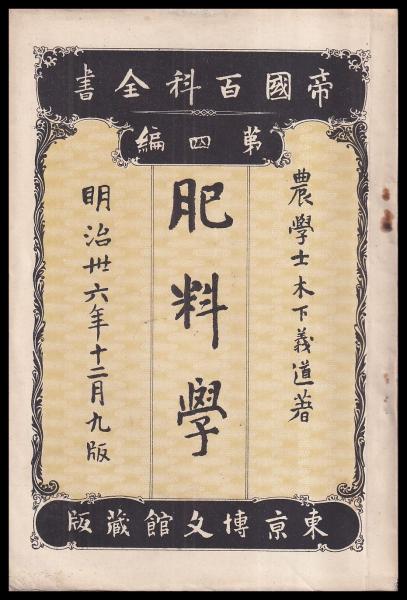 帝國百科全書
第四編
農學士木下義道著
肥料學
明治卅六年十二月九版
東京博文館藏版